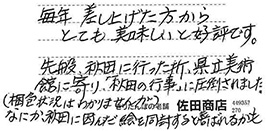 毎年 差し上げた方から
とても美味しいと好評です。
先般、秋田に行った所、県立美術
館に寄り、秋田の行事。に圧倒されました。
(梱包状況はわかりませんが
の老舗 佐田商店 449357
270
なにか、秋田に因んだ絵を同封すると喜ばれるかも